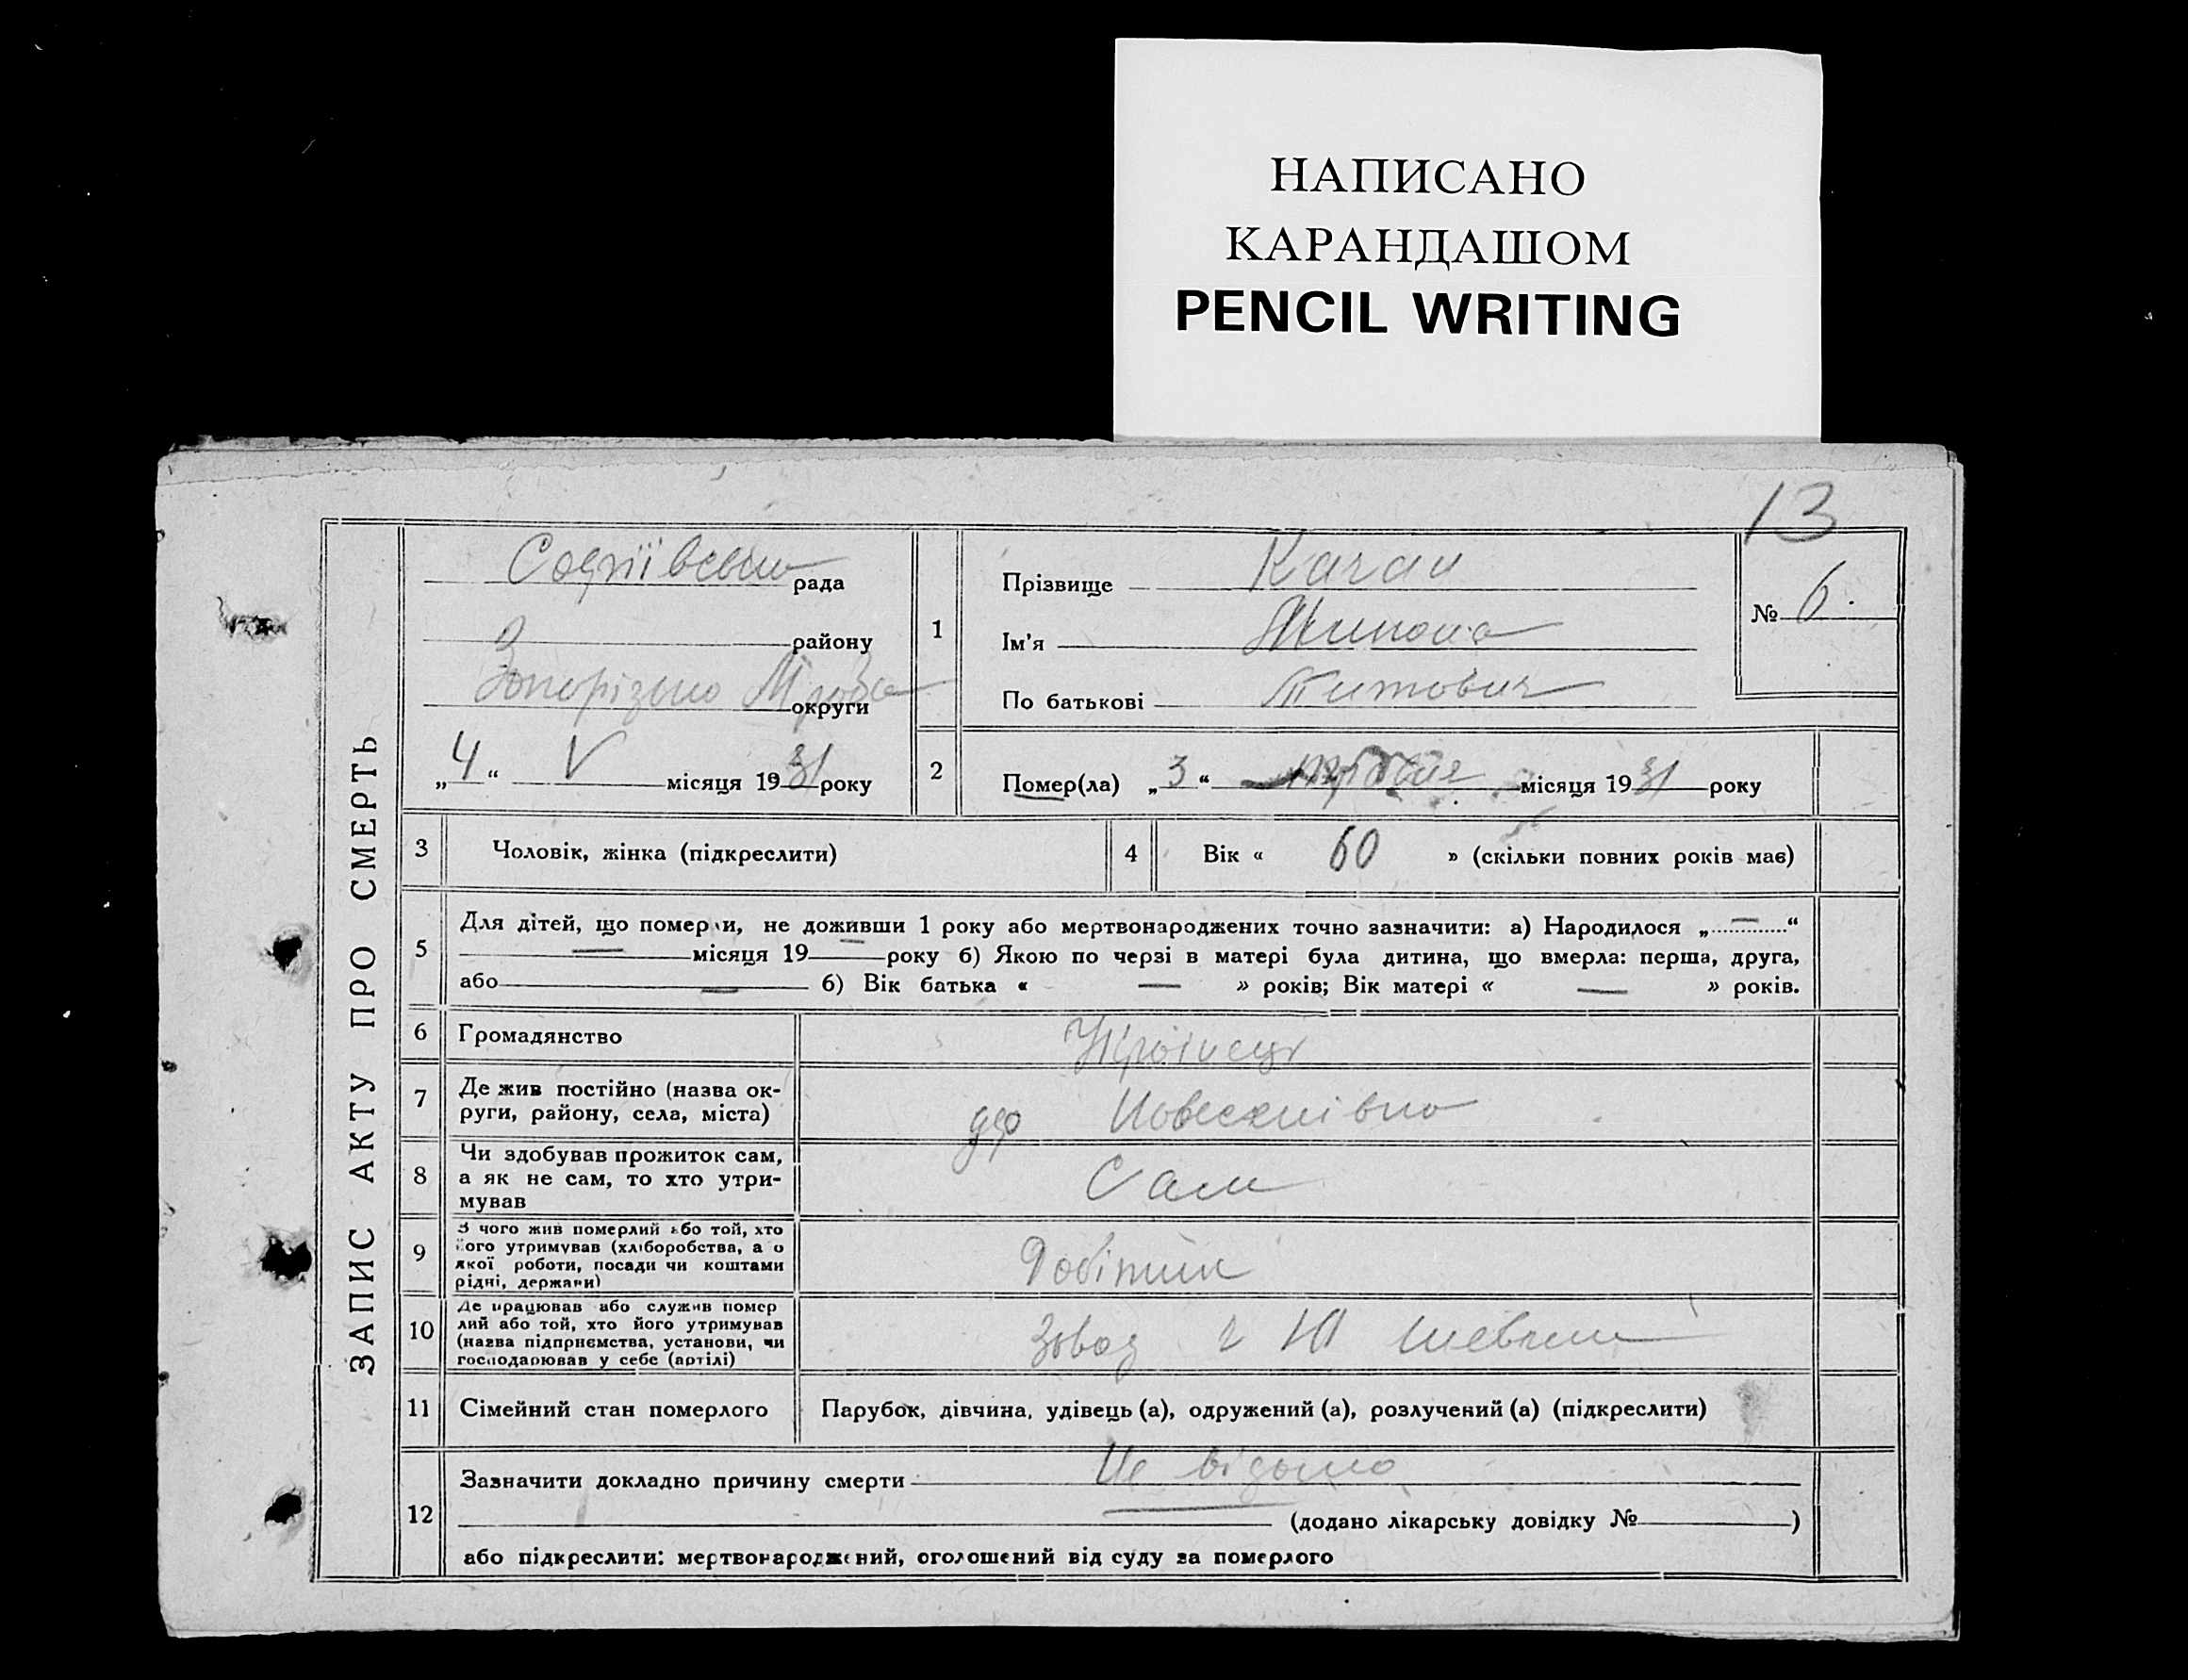 НАПИСАНО
КАРАНДАШОМ
PENCIL WRITING
13
ЗАПИС АКТУ ПРО СМЕРТЬ
Софіївсько рада
району
Запорізько М рода округи
„4“ V місяця 1931 року
1
Прізвище Качан
Ім'я
По батькові Титович
№ 6.
2
Помер(ла) „3“ травня місяця 1931 року
3 Чоловік, жінка (підкреслити)
4 Вік « 60 » (скільки повних років має)
5 Для дітей, що померли, не доживши 1 року або мертвонароджених точно зазначити: а) Народилося „ — “
— місяця 19 — року б) Якою по черзі в матері була дитина, що вмерла: перша, друга,
або — б) Вік батька « — » років; Вік матері « — » років.
6 Громадянство Українець
7 Де жив постійно (назва ок-
руги, району, села, міста)
8 Чи здобував прожиток сам,
а як не сам, то хто утри-
мував
Сам
9 З чого жив померлий або той, хто
його утримував (хліборобства, а о
якої роботи, посади чи коштами
рідні, держави)
Робітник
10 Де працював або служив помер
лий або той, хто його утримував
(назва підприємства, установи, чи
господарював у себе (артілі)
Завод
11 Сімейний стан померлого Парубок, дівчина, удівець (а), одружений (а), розлучений (а) (підкреслити)
12 Зазначити докладно причину смерти Не відомо
(додано лікарську довідку № )
або підкреслити: мертвонароджений, оголошений від суду за померлого